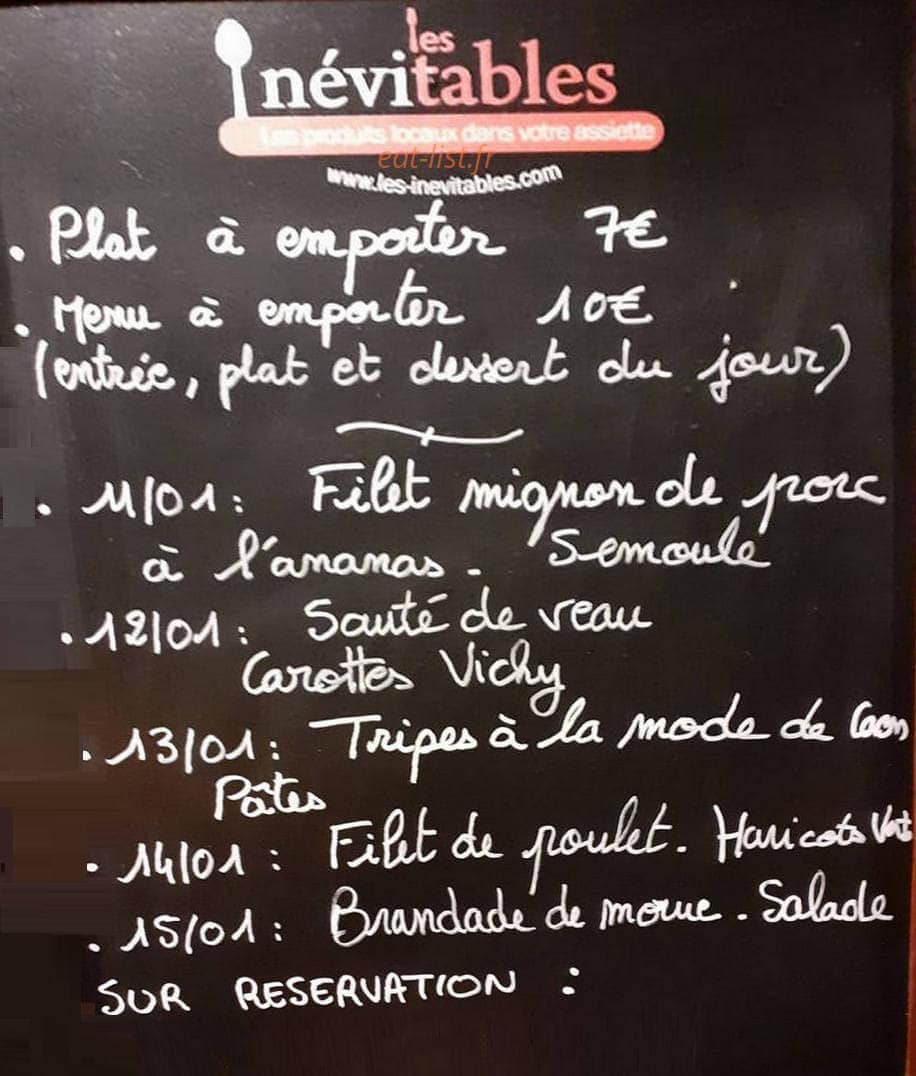 les
inévitables
Les produits locaux dans votre assiette
eat-list.fr
www.les-inevitables.com
. Plat à emporter 7€
. Menu à emporter 10€
(entrée, plat et dessert du jour)
. 11/01: Filet mignon de porc
à l'ananas. Semoule
. 12/01: Sauté de veau
Carottes Vichy
. 13/01: Tripes à la mode de Caen
Pâtes
. 14/01: Filet de poulet. Haricots Vert
. 15/01: Brandade de morue. Salade
SUR RESERVATION :